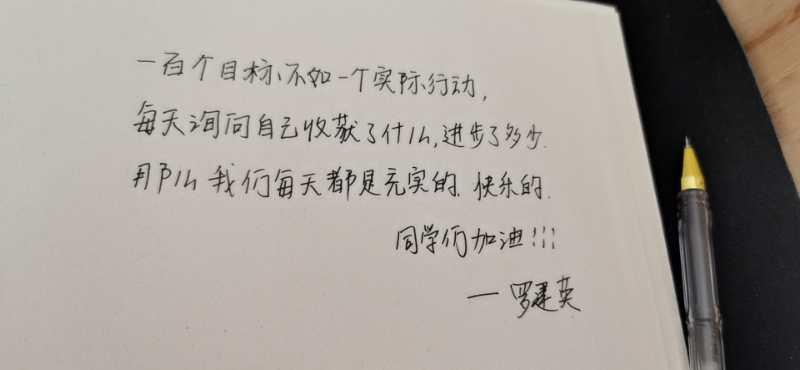 一百个目标、不如一个实际行动,
每天询问自己收获了什么,进步了多少.
那么我们每天都是充实的.快乐的.
同学们加油!!!
— 罗建英